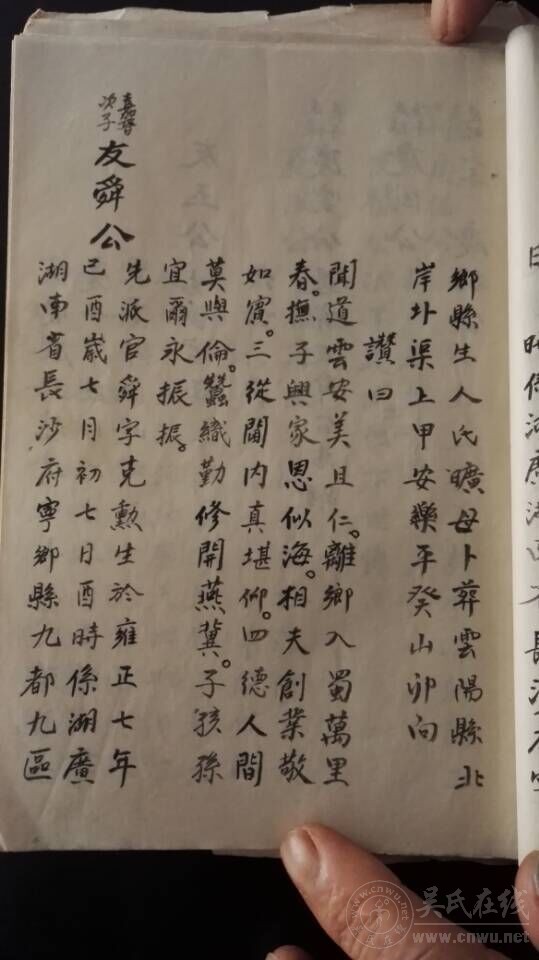 鄉縣生人氏曠母卜葬雲陽縣北
岸圤渠上甲安藥平癸山卯向
讚曰
聞道雲安美且仁。離鄉入蜀萬里
春。撫子興家恩似海。相夫創業敬
如賓。三從閫内真堪仰。四德人間
莫與倫。蠶織勤修開燕冀。子孩孫
宜爾永振振。
次子
友舜公
先派官舜字克勳生於雍正七年
己酉歲七月初七日酉時係湖廣
湖南省長沙府寧鄉縣九都九區
吴氏在线
www.cnwu.net